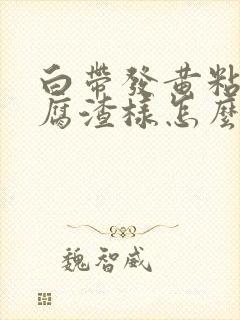 白帶發黃粘
腐渣樣怎麼
魏智威